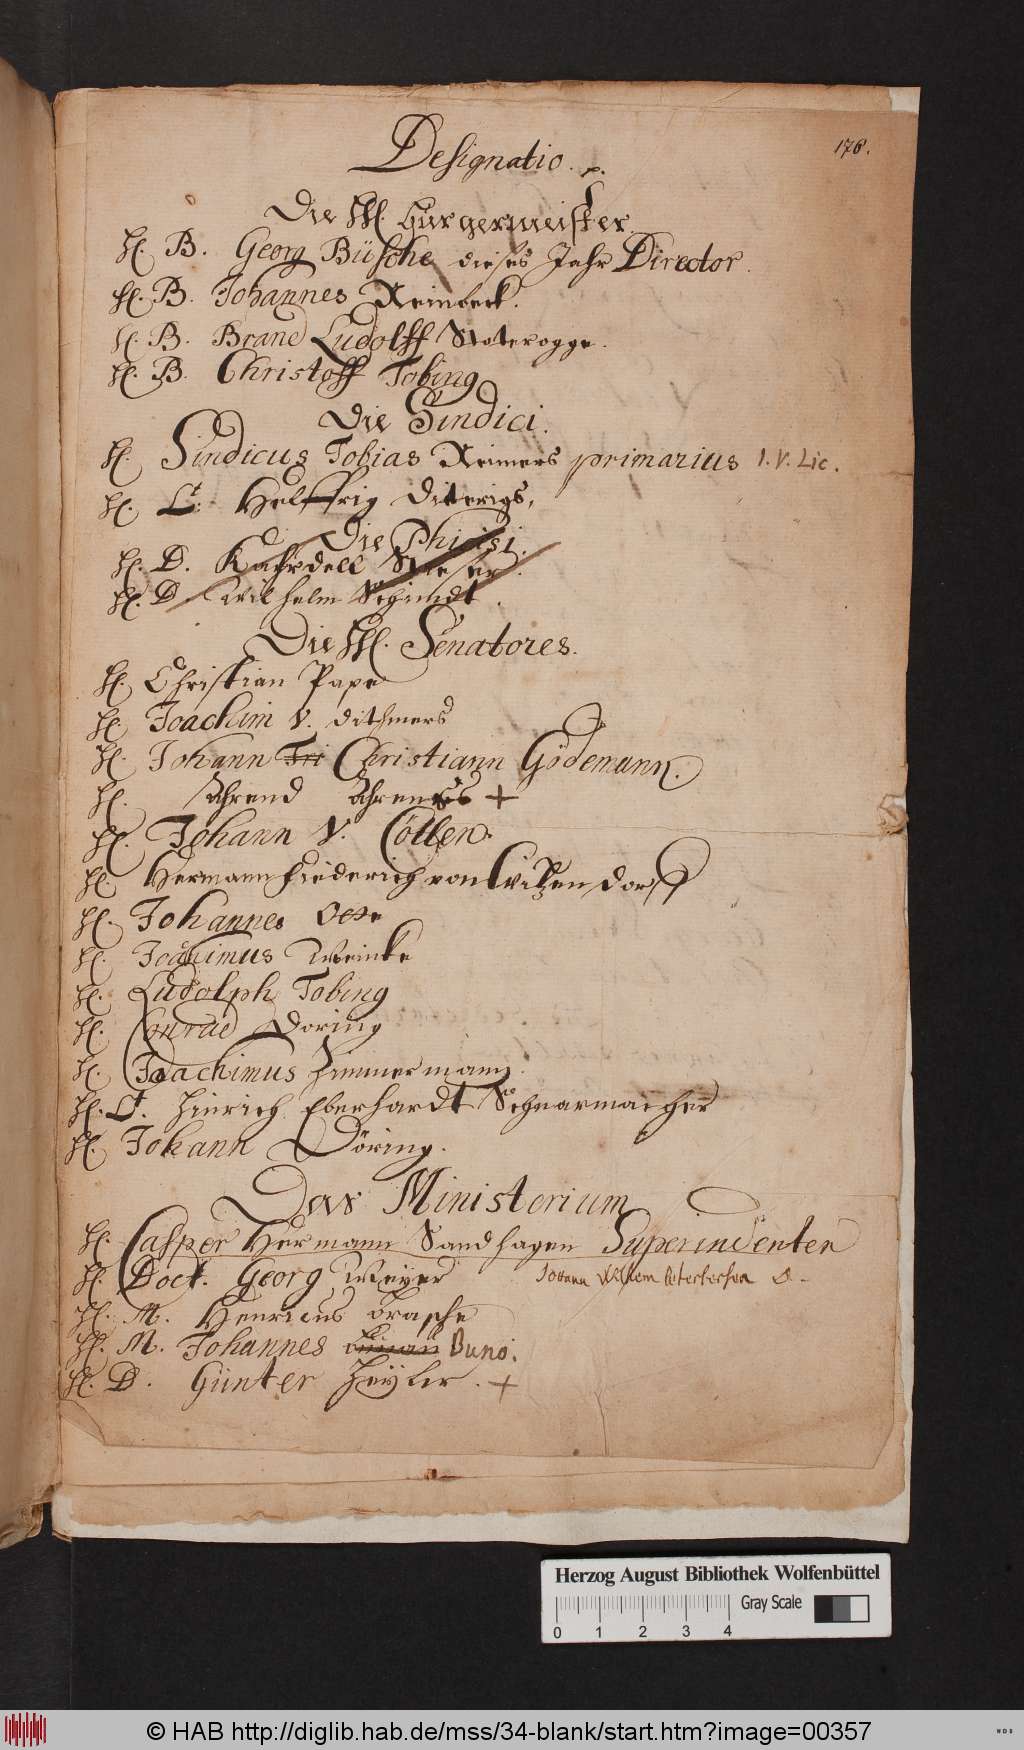 178.
Designatio.
Die HH. burgermeister.
H. B. Georg Büsche dieses Jahr Director.
H. B. Johannes Reinbeck.
H. B. Brand Ludolff Stoterogge.
H. B. Christoff Tobing
Die Sindici.
H. Sindicus Tobias Reimers primarius I. V. Lic.
H. Lt: Helffrig Diterigs,
Die Phisisi.
H. D. Kahrdell
H. D. Wilhelm Schmidt.
Die HH. Senatores.
H. Christian Pape
H. Joachim V. Dithmers
H. Johann Fri Christiann Gödemann.
H. Ahrend Ahrends +
H. Johann V. Cöllen.
H. Hermann Friederich von Witzendorff
H. Johannes
H. Joachimus Reinke
H. Ludolph Tobing
H. Conrad Doring
H. Joachimus Zimmermann.
H. Lt. Hinrich Eberhardt Schnarmacher
H. Johann Döring.
Das Ministerium
H. Casper Hermann Sandhagen Superindenten
H. Doct. Georg Meyer Johann Wilhem Petersersen D.
H. M. Henricus Brasche
H. M. Johannes Buno.
H. D. Günter Heyler. +
Herzog August Bibliothek Wolfenbüttel
Gray Scale
0 1 2 3 4
© HAB http://diglib.hab.de/mss/34-blank/start.htm?image=00357
WDB